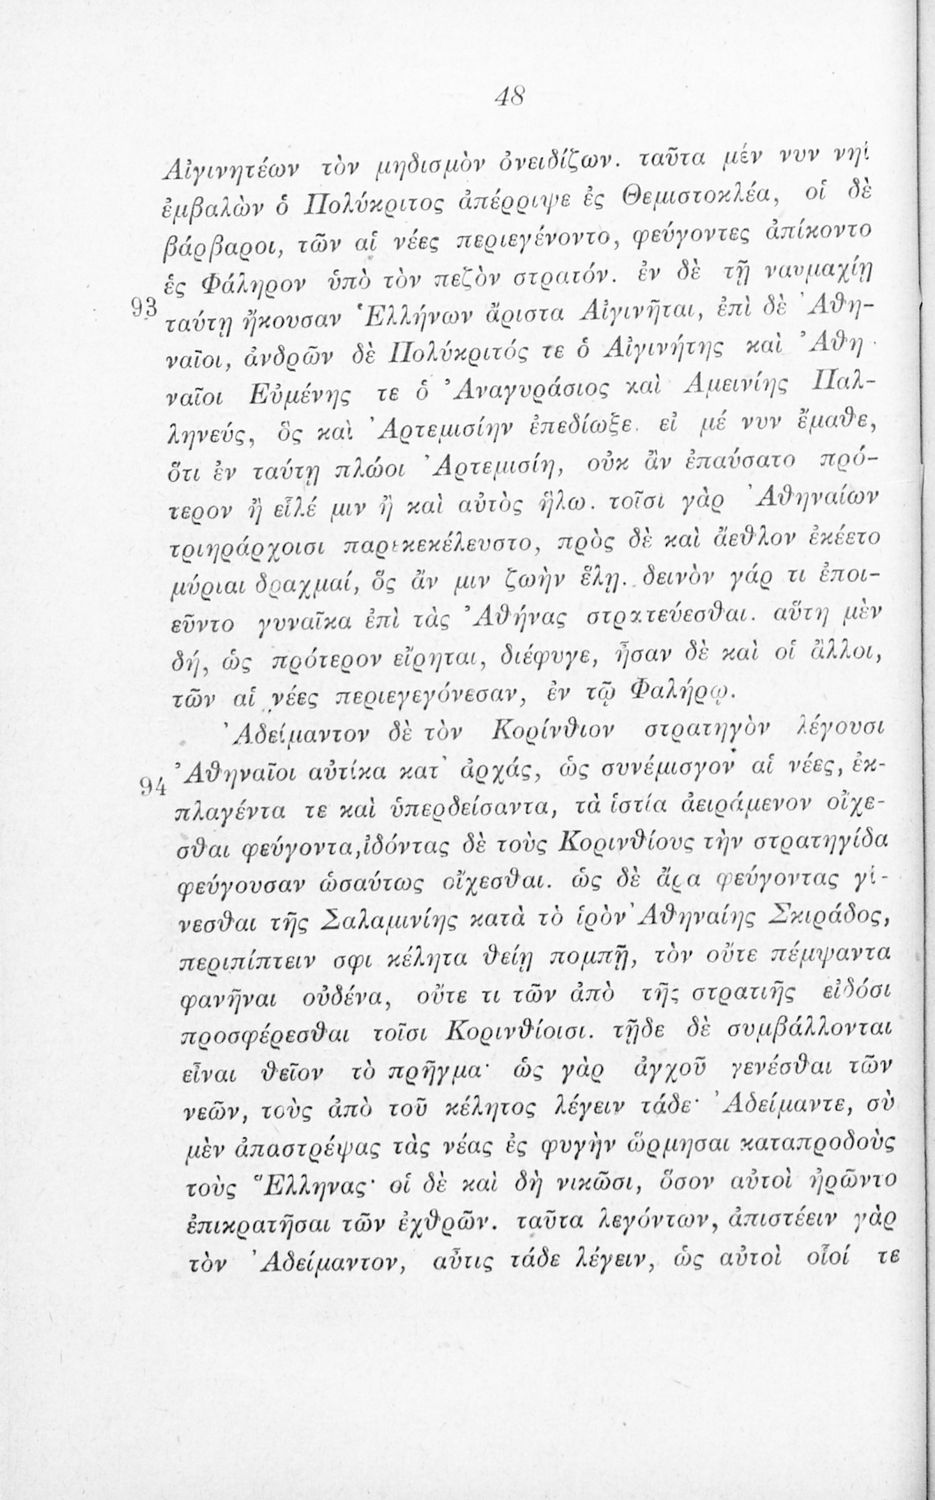 48
Αἰγινητέων τὸν μηδισμὸν ὀνειδίζων. ταῦτα μέν νυν νηῒ
ἐμβαλὼν ὁ Πολύκριτος ἀπέρριψε ἐς Θεμιστοκλέα, οἱ δὲ
βάρβαροι, τῶν αἱ νέες περιεγένοντο, φεύγοντες ἀπίκοντο
ἐς Φάληρον ὑπὸ τὸν πεζὸν στρατόν. ἐν δὲ τῇ ναυμαχίῃ
93 ταύτῃ ἤκουσαν Ἑλλήνων ἄριστα Αἰγινῆται, ἐπὶ δὲ Ἀθη-
ναῖοι, ἀνδρῶν δὲ Πολύκριτός τε ὁ Αἰγινήτης καὶ Ἀθη-
ναῖοι Εὐμένης τε ὁ Ἀναγυράσιος καὶ Ἀμεινίης Παλ-
ληνεύς, ὃς καὶ Ἀρτεμισίην ἐπεδίωξε. εἰ μέ νυν ἔμαθε,
ὅτι ἐν ταύτῃ πλώοι Ἀρτεμισίη, οὐκ ἂν ἐπαύσατο πρό-
τερον ἢ εἷλέ μιν ἢ καὶ αὐτὸς ἥλω. τοῖσι γὰρ Ἀθηναίων
τριηράρχοισι παρεκεκέλευστο, πρὸς δὲ καὶ ἄεθλον ἐκέετο
μύριαι δραχμαί, ὃς ἄν μιν ζωὴν ἕλῃ. δεινὸν γάρ τι ἐποι-
εῦντο γυναῖκα ἐπὶ τὰς Ἀθήνας στρατεύεσθαι. αὕτη μὲν
δή, ὡς πρότερον εἴρηται, διέφυγε, ἦσαν δὲ καὶ οἱ ἄλλοι,
τῶν αἱ νέες περιεγεγόνεσαν, ἐν τῷ Φαλήρῳ.
Ἀδείμαντον δὲ τὸν Κορίνθιον στρατηγὸν λέγουσι
94 Ἀθηναῖοι αὐτίκα κατ' ἀρχάς, ὡς συνέμισγον αἱ νέες, ἐκ-
πλαγέντα τε καὶ ὑπερδείσαντα, τὰ ἱστία ἀειράμενον οἴχε-
σθαι φεύγοντα, ἰδόντας δὲ τοὺς Κορινθίους τὴν στρατηγίδα
φεύγουσαν ὡσαύτως οἴχεσθαι. ὡς δὲ ἄρα φεύγοντας γί-
νεσθαι τῆς Σαλαμινίης κατὰ τὸ ἱρὸν Ἀθηναίης Σκιράδος,
περιπίπτειν σφι κέλητα θείῃ πομπῇ, τὸν οὔτε πέμψαντα
φανῆναι οὐδένα, οὔτε τι τῶν ἀπὸ τῆς στρατιῆς εἰδόσι
προσφέρεσθαι τοῖσι Κορινθίοισι. τῇδε δὲ συμβάλλονται
εἶναι θεῖον τὸ πρῆγμα· ὡς γὰρ ἀγχοῦ γενέσθαι τῶν
νεῶν, τοὺς ἀπὸ τοῦ κέλητος λέγειν τάδε· Ἀδείμαντε, σὺ
μὲν ἀποστρέψας τὰς νέας ἐς φυγὴν ὥρμησαι καταπροδοὺς
τοὺς Ἕλληνας· οἱ δὲ καὶ δὴ νικῶσι, ὅσον αὐτοὶ ἠρῶντο
ἐπικρατῆσαι τῶν ἐχθρῶν. ταῦτα λεγόντων, ἀπιστέειν γὰρ
τὸν Ἀδείμαντον, αὖτις τάδε λέγειν, ὡς αὐτοὶ οἷοί τε